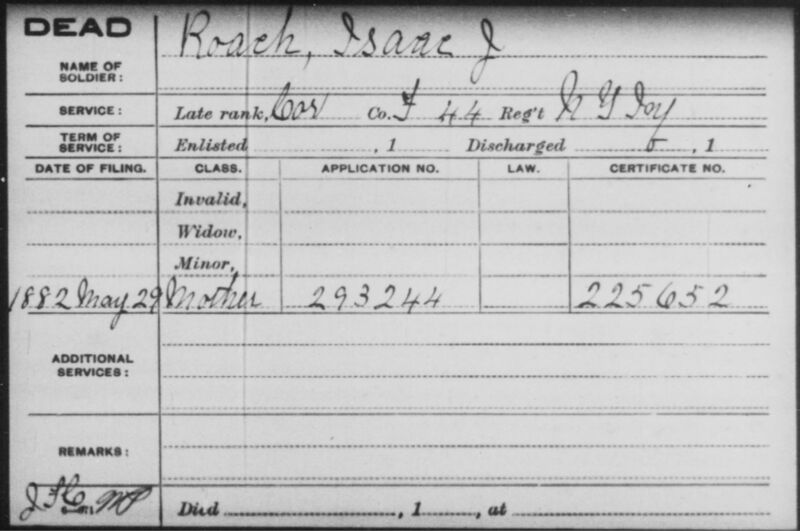 DEAD
NAME OF SOLDIER: Roach, Isaac J
SERVICE: Late rank, Cor Co. F 44 Reg't N Y Inf
TERM OF SERVICE: Enlisted , 1 Discharged , 1
DATE OF FILING. CLASS. APPLICATION NO. LAW. CERTIFICATE NO.
Invalid,
Widow,
Minor,
1882 May 29 Mother 293244 225652
ADDITIONAL SERVICES:
REMARKS:
Died , 1 , at